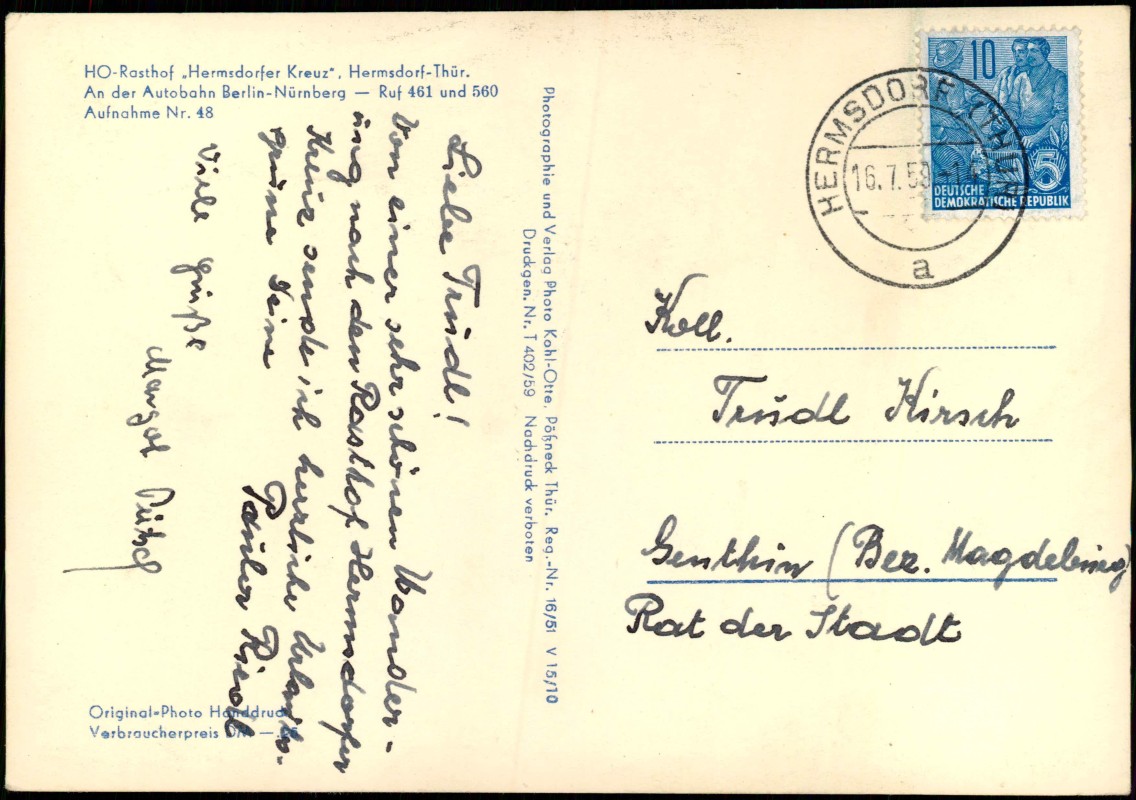 HO-Rasthof „Hermsdorfer Kreuz", Hermsdorf-Thür.
An der Autobahn Berlin-Nürnberg — Ruf 461 und 560
Aufnahme Nr. 48
Liebe Trudl!
Von einer sehr schönen Wander-
ung nach dem Rasthof Hermsdorfer
Kreuz sende ich herzliche Urlaubs-
grüße Deine
Viele Grüße
Margot
Original-Photo Handdruck
Verbraucherpreis DM —.25
Photographie und Verlag Photo Kohl-Otte, Pößneck Thür. Reg.-Nr. 16/51 V 15/10
Druckgen. Nr. T 402/59 Nachdruck verboten
10
5
DEUTSCHE
DEMOKRATISCHE REPUBLIK
HERMSDORF (THÜR)
16.7.59
a
Koll.
Trudl Kirsch
Genthin (Bez. Magdeburg)
Rat der Stadt